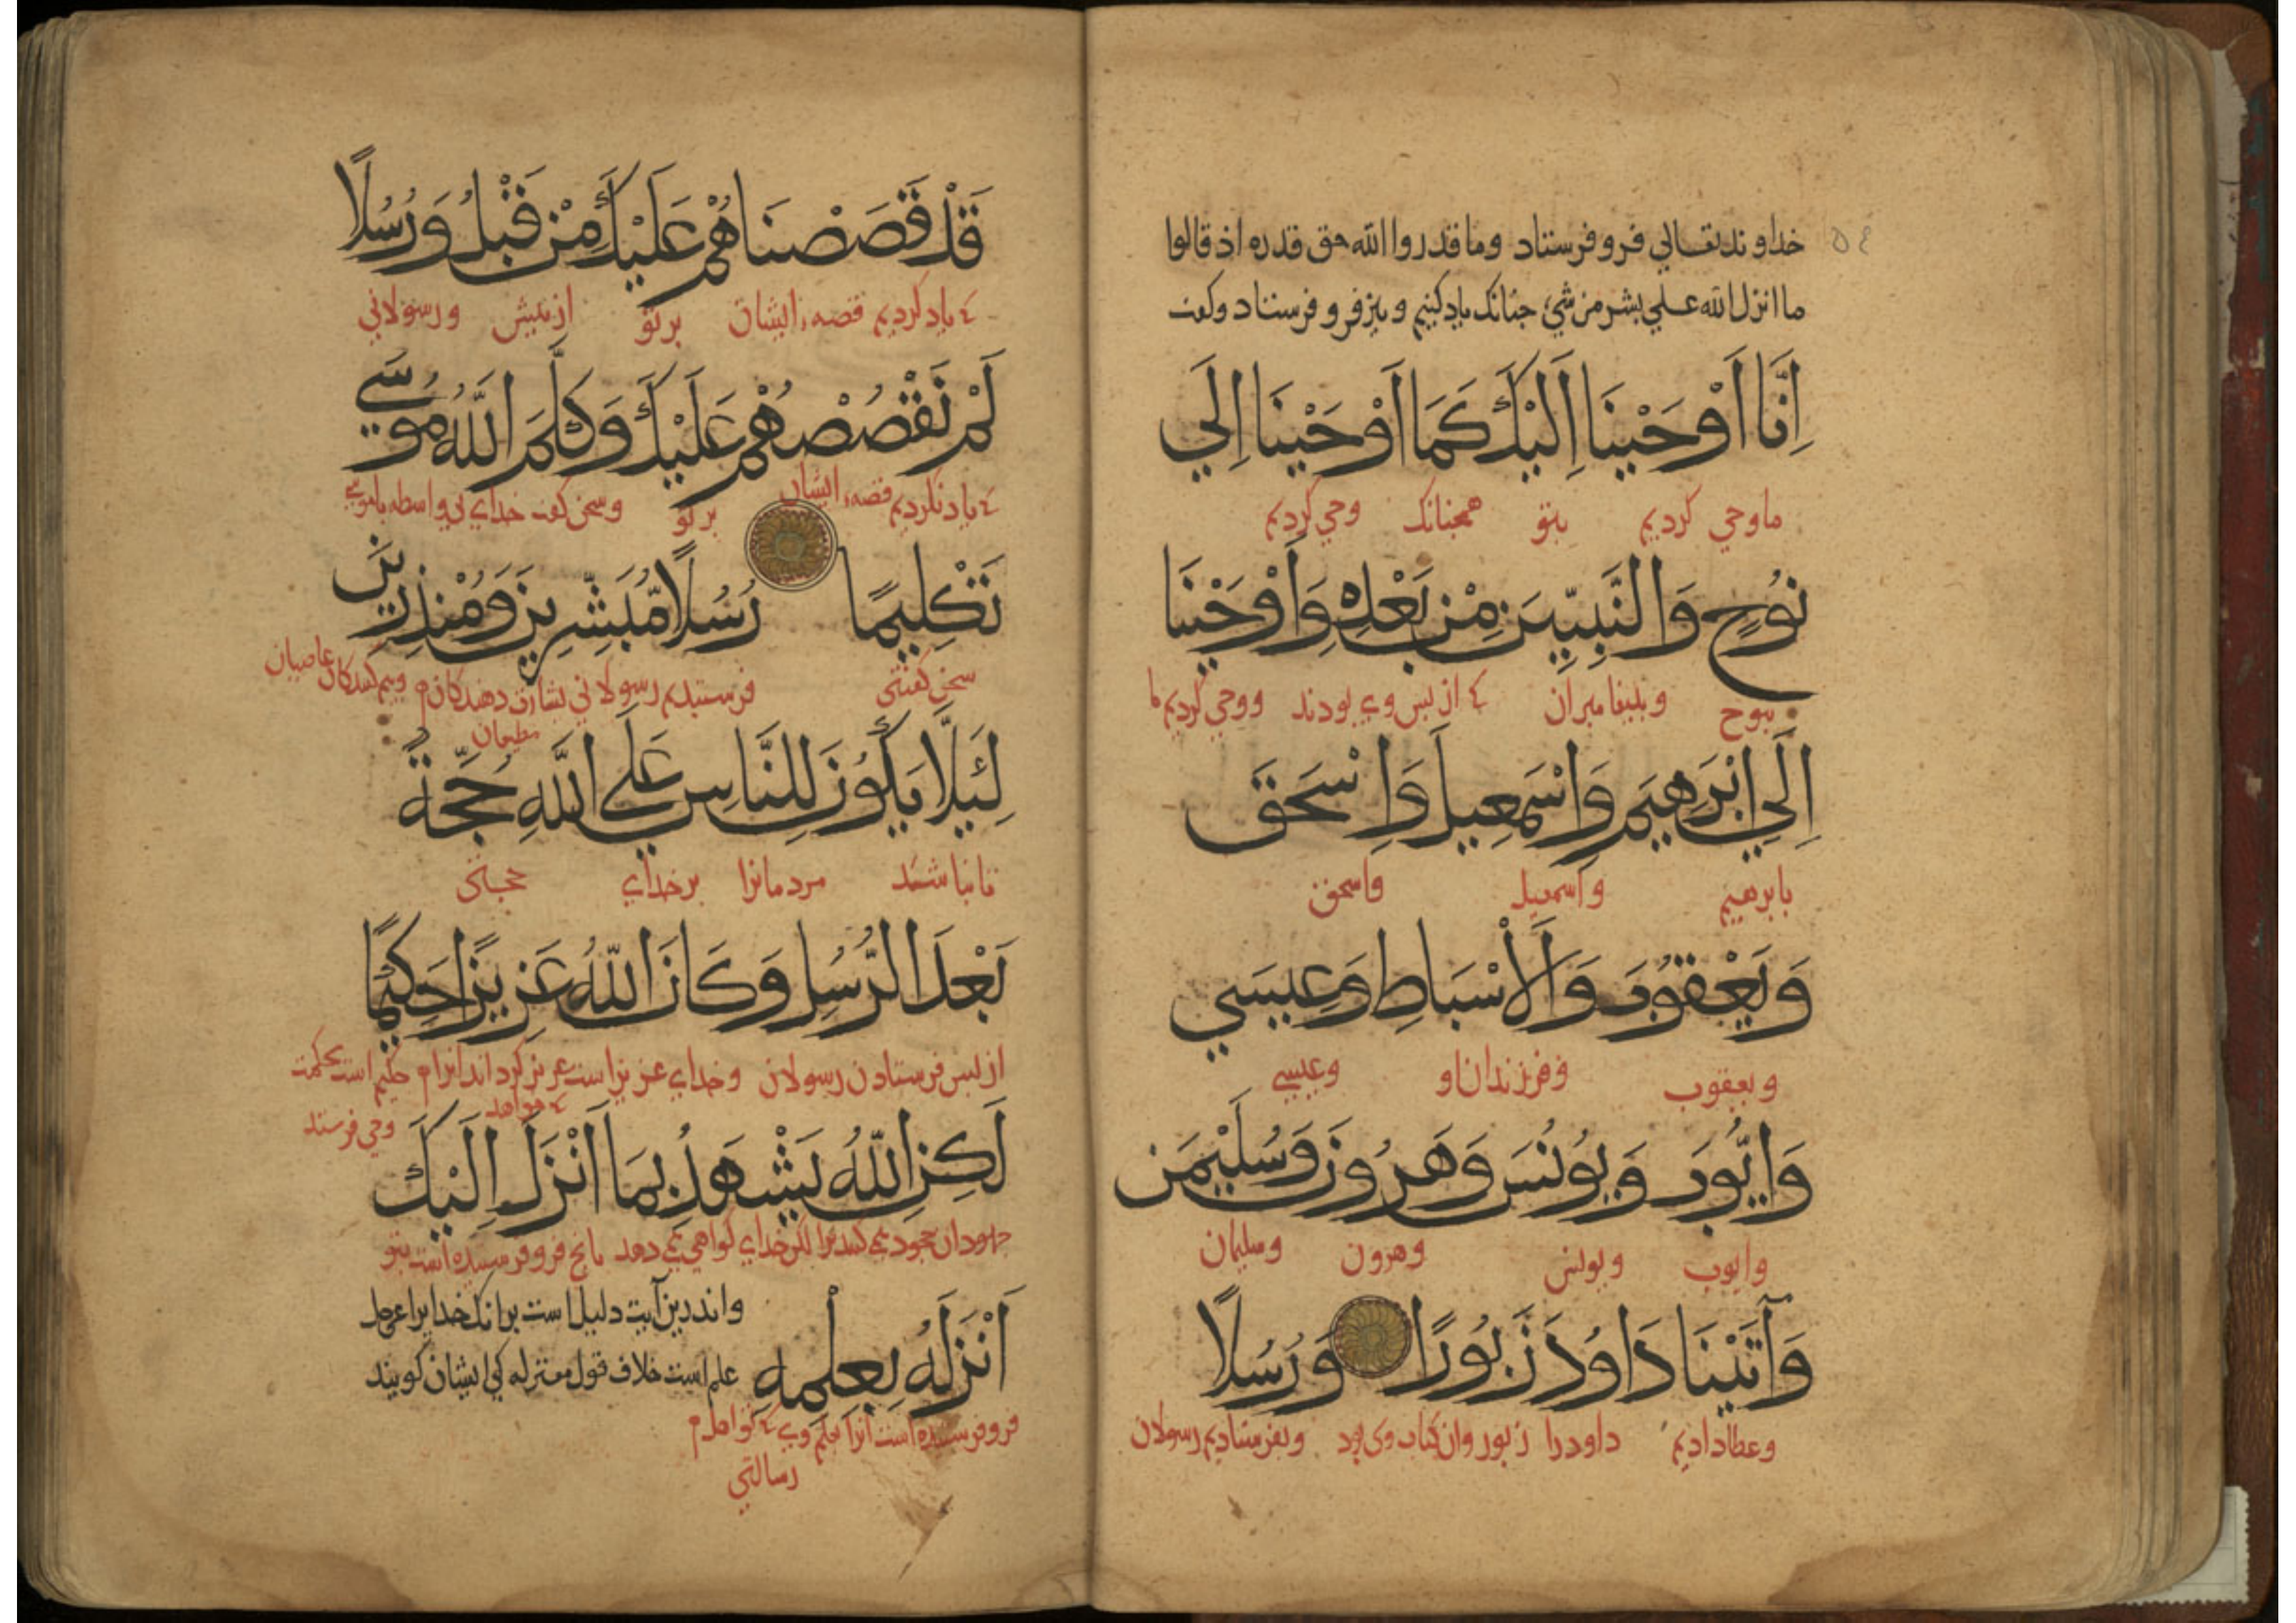 ٥٤
خداوند تعالي فرو فرستاد وما قدروا الله حق قدره اذ قالوا
ما انزل الله علي بشر من شيء جنانك ياد كنيم و نيز فرو فرستاد وكفت
اِنَّا اَوْحَيْنَا اِلَيْكَ كَمَا اَوْحَيْنَا اِلَي
ما وحي كرديم بتو همجنانك وحي كرديم
نُوحٍ وَالنَّبِيّيَن مِنْ بَعْدِهِ وَاَوْحَيْنَا
بنوح و بيغامبران كه از بس وي بودند ووحي كرديم ما
اِلَي اِبْرَهِيمَ وَاِسْمَعِيلَ وَاِسْحَقَ
بابرهيم واسمعيل واسحق
وَيَعْقُوبَ وَالْاَسْبَاطِ وَعِيسَي
ويعقوب وفرزندان او وعيسي
وَاَيُّوبَ وَيُونُسَ وَهَرُونَ وَسُلَيْمَنَ
وايوب ويونس وهرون وسليمان
وَآتَيْنَا دَاوُدَ زَبُورًا وَرُسُلًا
وعطا داديم داود را زبور وان كتاب وي بود وبفرستاديم رسولان
قَدْ قَصَصْنَاهُمْ عَلَيْكَ مِنْ قَبْلُ وَرُسُلًا
كه ياد كرديم قصهء ايشان بر تو از بيش ورسولاني
لَمْ نَقْصُصْهُمْ عَلَيْكَ وَكَلَّمَ اللَّهُ مُوسَي
كه ياد نكرديم قصهء ايشان بر تو وسخن كفت خداي بي واسطه با موسي
تَكْلِيمًا رُسُلًا مُّبَشِّرِينَ وَمُنْذِرِينَ
سخن كفتني فرستيديم رسولاني بشارت دهندكان مطيعان وبيم كنندكان عاصيان
لِئَلَّا يَكُونَ لِلنَّاسِ عَلَي اللَّهِ حُجَّةٌ
تا نباشد مردمانرا بر خداي حجتي
بَعْدَ الرُّسُلِ وَكَانَ اللَّهُ عَزِيزًا حَكِيمًا
از بس فرستادن رسولان وخداي عزيز است عزيز كرداند انرا كه خواهد حكيم است بحكمت وحي فرستد
لَكِنِ اللَّهُ يَشْهَدُ بِمَا اَنْزَلَ اِلَيْكَ
جهودان جحود مي كنند ترا لكن خداي كواهي مي دهد بانج فرو فرستيده است بتو
اَنْزَلَهُ بِعِلْمِهِ واندرين آيت دليل است برانك خدايرا عز وجل
علم است خلاف قول معتزله كي ايشان كويند
فرو فرستيده است انرا بعلم وي كه تو اهل
رسالتي